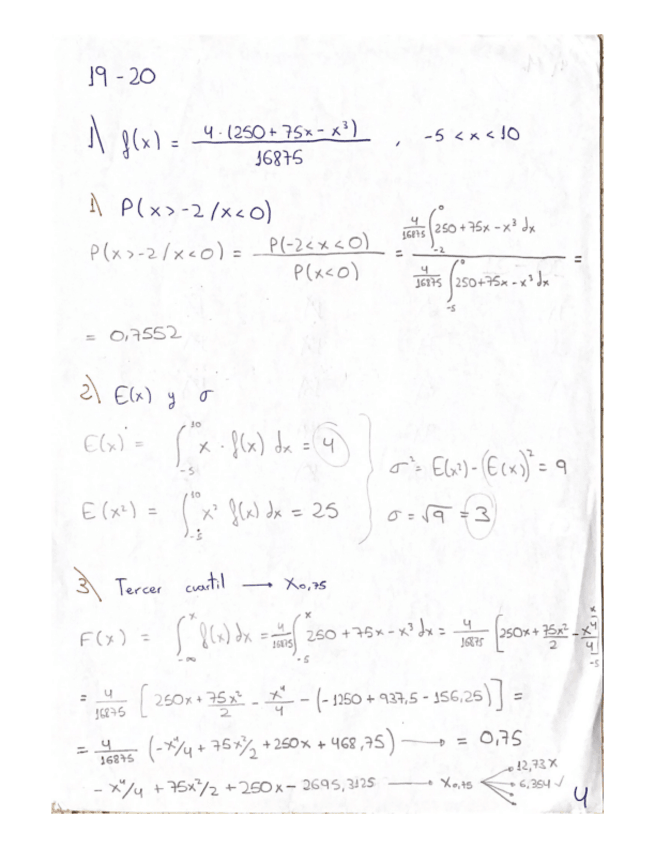 19-20
1) f(x) = 4·(250+75x-x³)/16875 , -5<x<10
1) P(x>-2/x<0)
P(x>-2/x<0) = P(-2<x<0)/P(x<0) = (4/16875 ∫_{-2}^{0} 250+75x-x³ dx)/(4/16875 ∫_{-5}^{0} 250+75x-x³ dx) =
= 0,7552
2) E(x) y σ
E(x) = ∫_{-5}^{10} x·f(x) dx = 4
σ² = E(x²)-(E(x))² = 9
E(x²) = ∫_{-5}^{10} x² f(x) dx = 25
σ = √9 = 3
3) Tercer cuartil → X0,75
F(x) = ∫_{-∞}^{x} f(x) dx = 4/16875 ∫_{-5}^{x} 250+75x-x³ dx = 4/16875 [250x+75x²/2-x⁴/4]_{-5}^{x}
= 4/16875 [250x+75x²/2-x⁴/4-(-1250+937,5-156,25)] =
= 4/16875 (-x⁴/4+75x²/2+250x+468,75) → = 0,75
-x⁴/4+75x²/2+250x-2695,3125 → X0,75 12,73 X
6,354 ✓
4